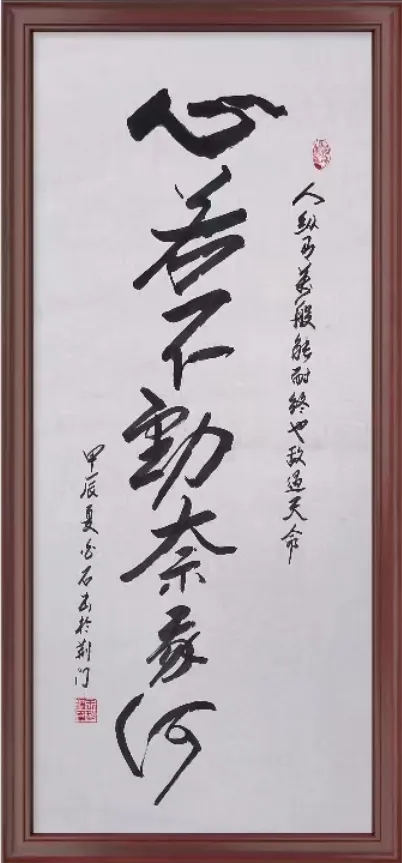 人纵有萬般能耐终也敌过天命
心若不動奈我何
甲辰夏石书於荆门